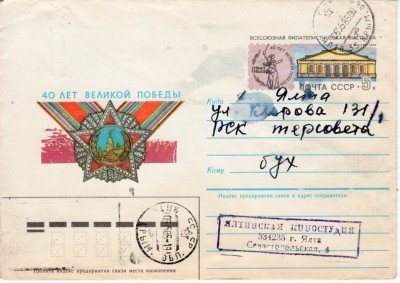 ВСЕСОЮЗНАЯ ФИЛАТЕЛИСТИЧЕСКАЯ ВЫСТАВКА
40 ЛЕТ ВЕЛИКОЙ ПОБЕДЫ
ПОЧТА СССР 5к
Куда Ялта
ул Кирова 131/1
РСК терсовета
Кому бух
Индекс предприятия связи и адрес отправителя
ЯЛТИНСКАЯ КИНОСТУДИЯ
334235 г. Ялта
Севастопольская, 4
СССР
ОБЛ.
Пишите индекс предприятия связи места назначения